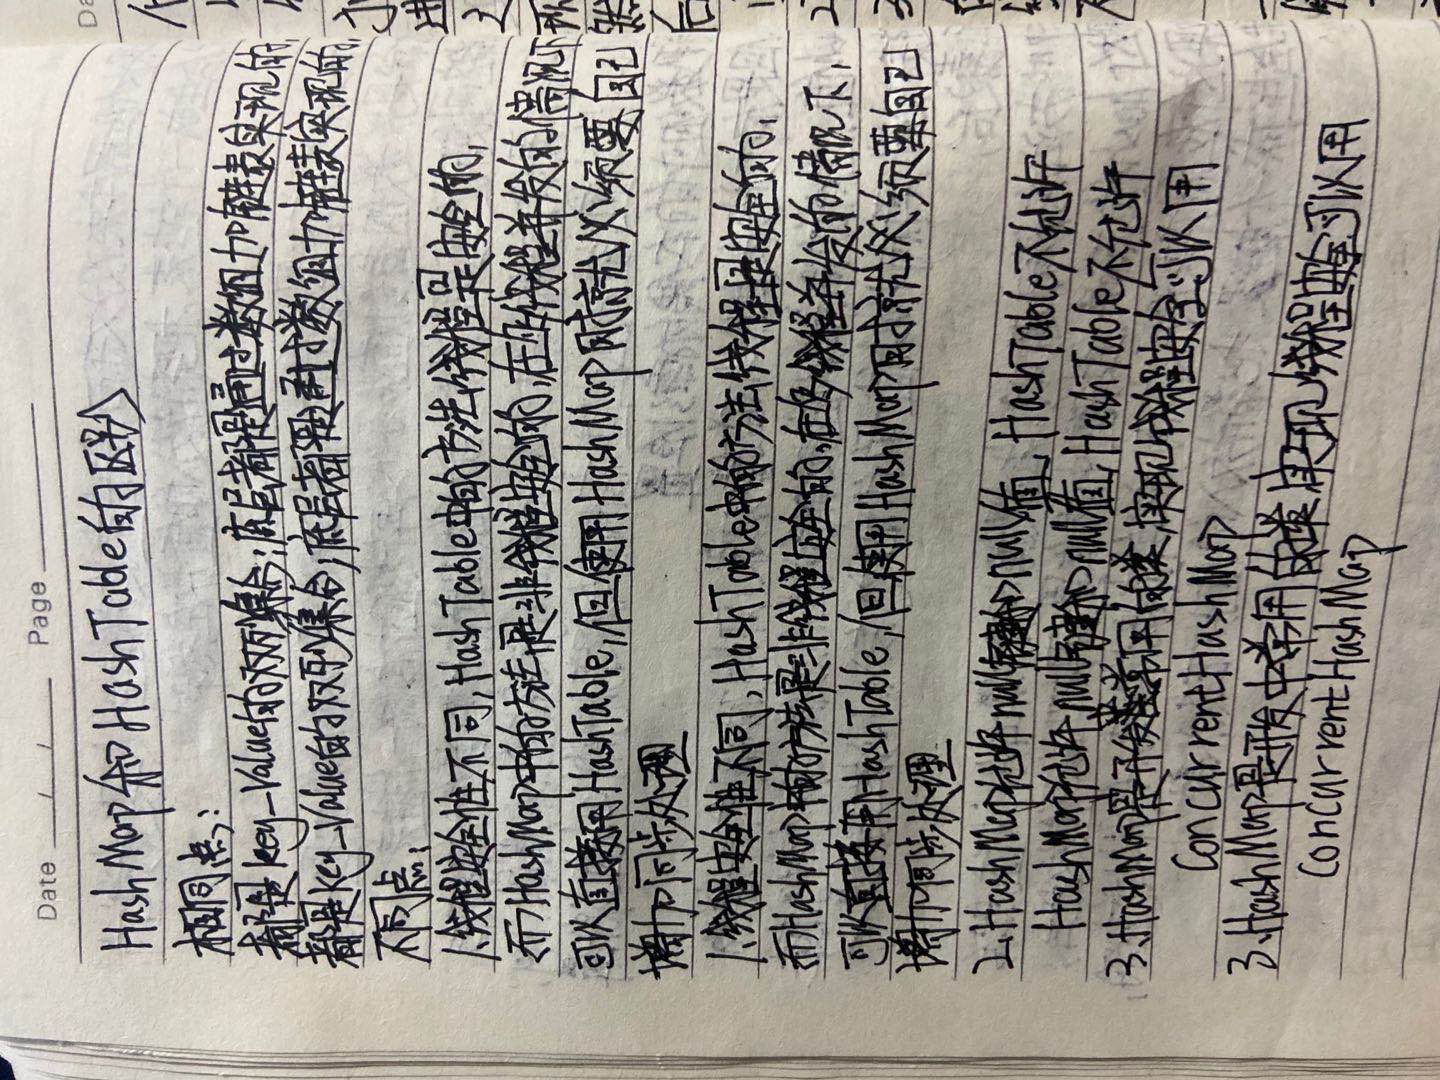 Date / / Page
HashMap和HashTable的区别
相同点:
都是key_Value的双列集合;底层都是通过数组加链表实现的,
都是key_Value的双列集合;底层都是通过数组加链表实现的,
不同点:
1.线程安全性不同,HashTable中的方法线程是安全的,
而HashMap中的方法是非线程安全的,在多线程并发的情况下
可以直接用HashTable,但使用HashMap时就必须要自己
增加同步处理
1.线程安全性不同,HashTable中的方法线程是安全的,
而HashMap中的方法是非线程安全的,在多线程并发的情况下,
可以直接用HashTable,但使用HashMap时就必须要自己
增加同步处理
2.HashMap允许null键和null值,HashTable不允许
HashMap允许null键和null值,HashTable不允许
3.HashMap是开发常用的类,实现线程安全可以用
ConcurrentHashMap
3.HashMap是开发中常用的类,实现线程安全可以用
ConcurrentHashMap